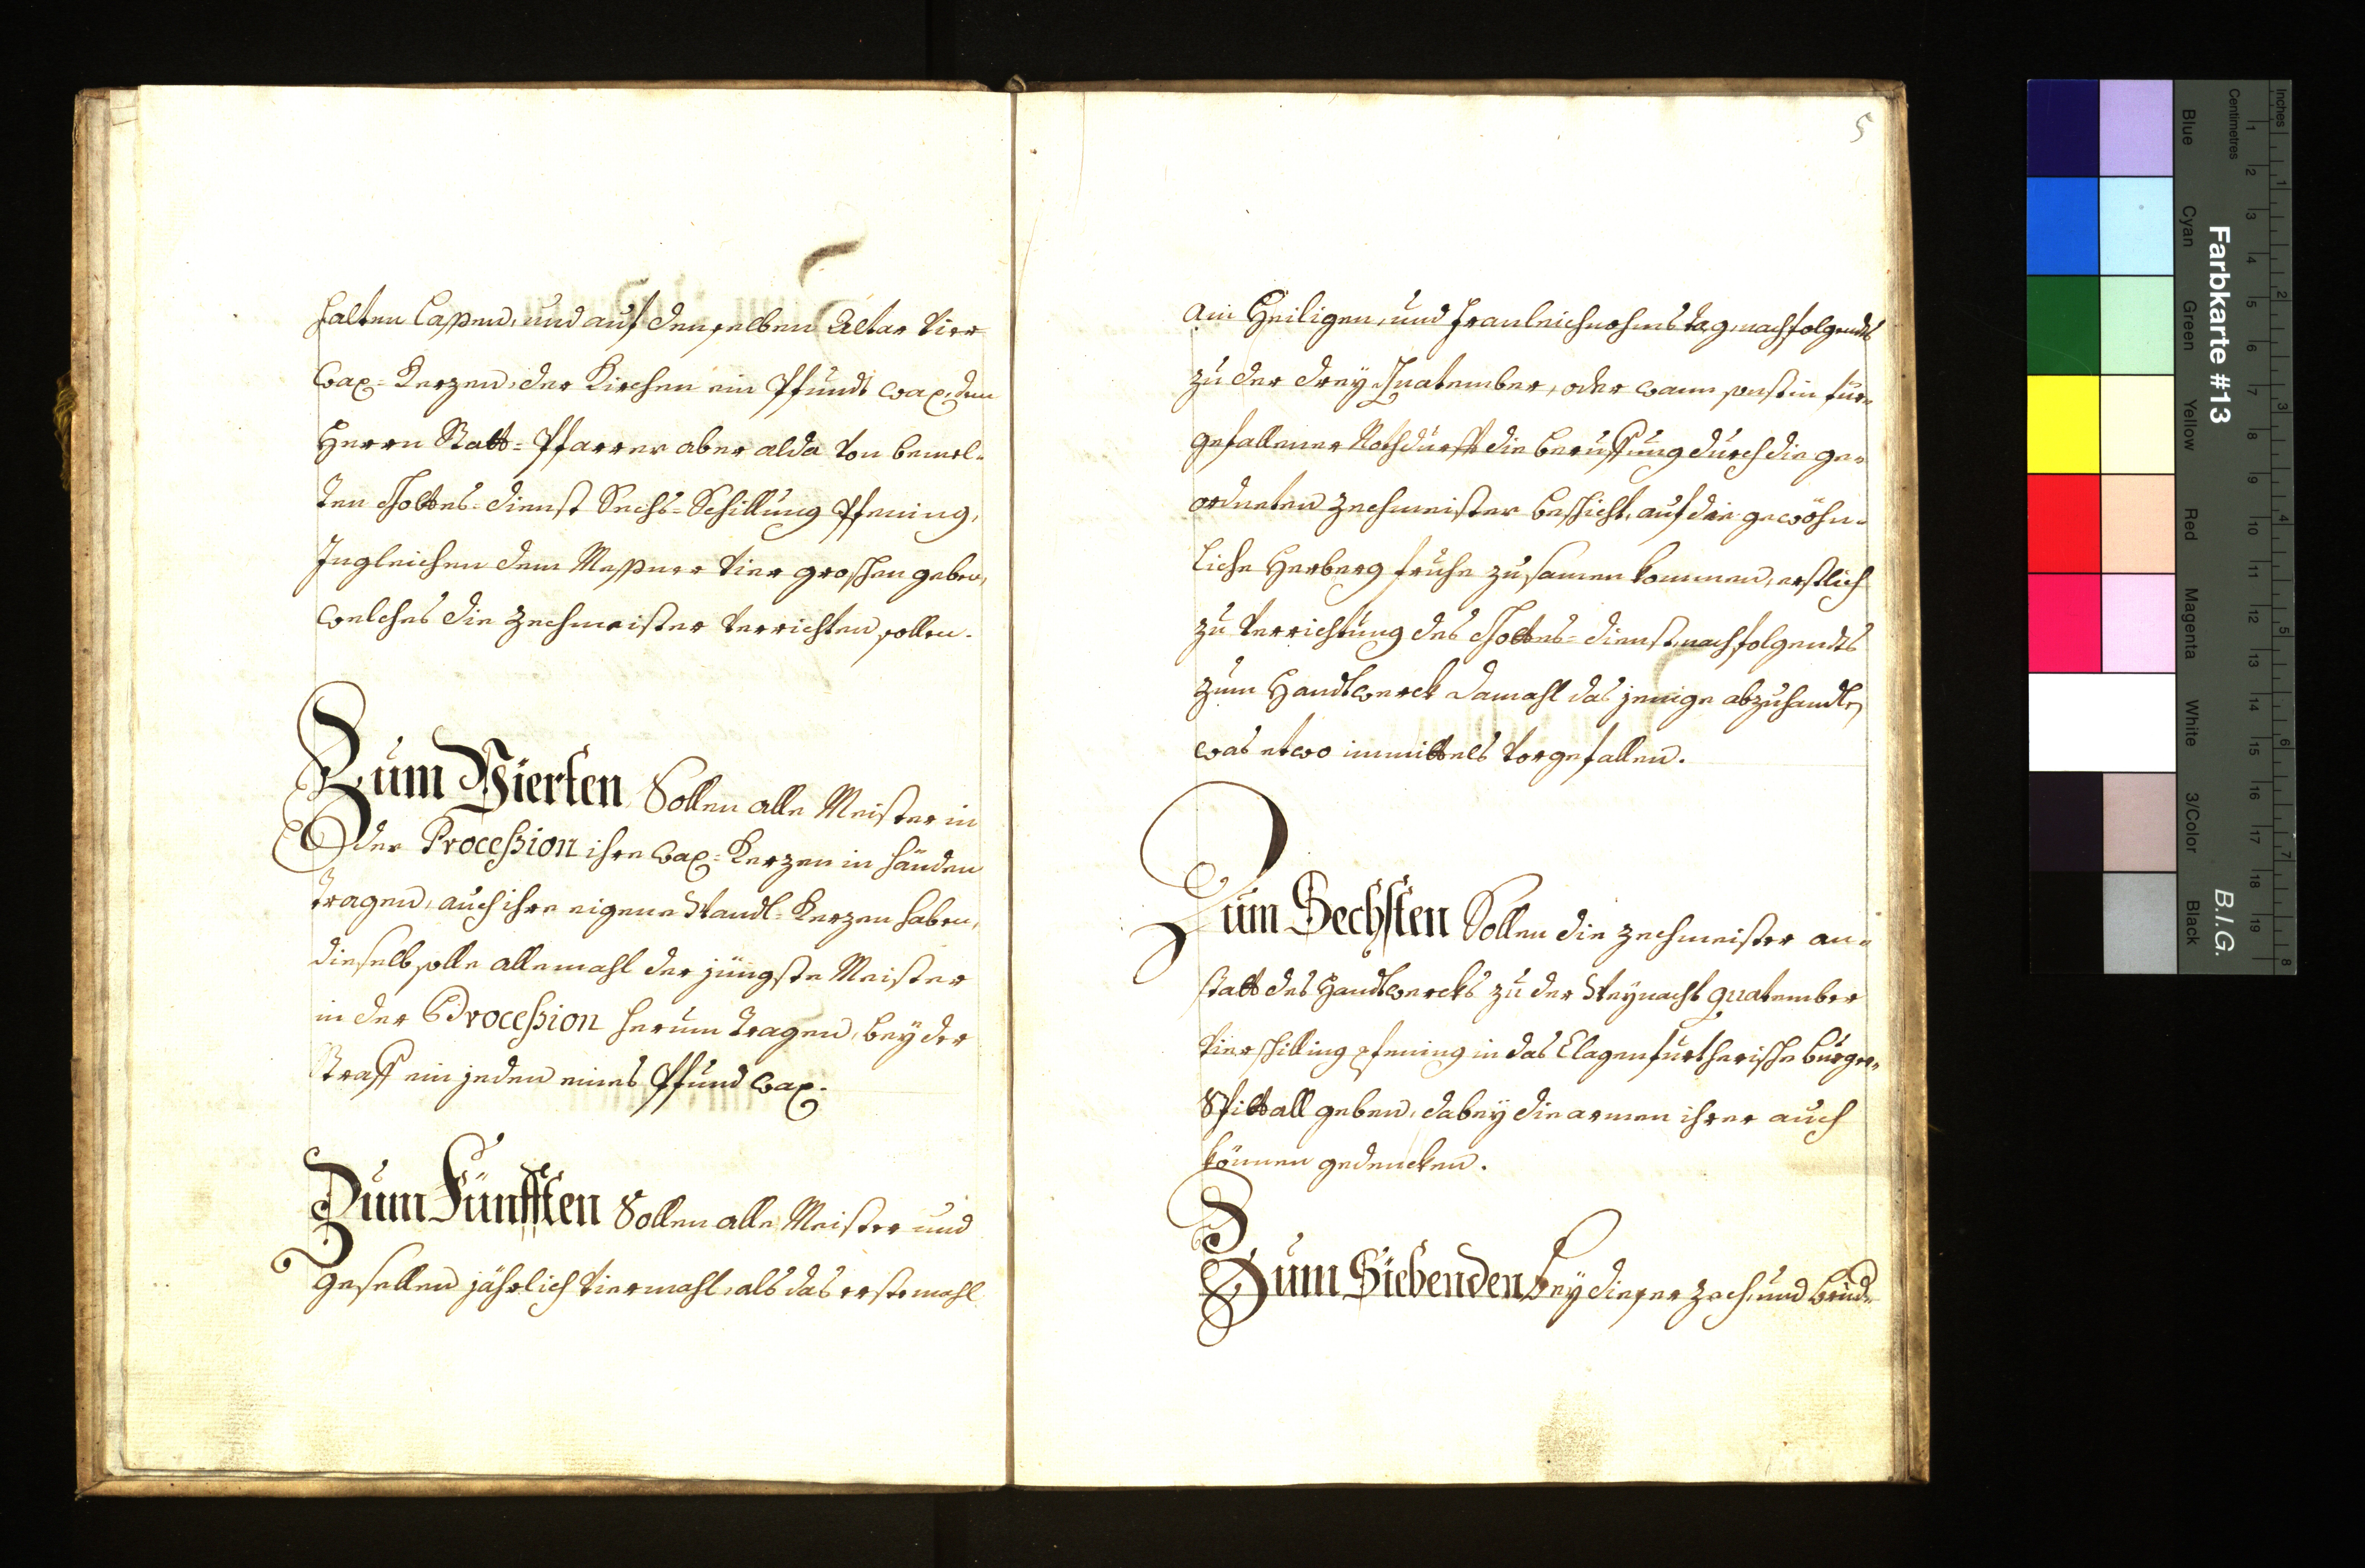 halten laßen, und auf denselben Altar vier
Wax= Kerzen, der Kirchen ein Pfundt wax, dem
Herrn Statt= Pfarrer aber alda von bemel=
ten Gottes= dienst Sechs= Schilling Pfening,
Ingleichen dem Meßner vier groschen geben,
welches die Zechmeister verrichten sollen.
Zum Vierten Sollen alle Meister in
der Proceßion ihre Wax= Kerzen in händen
tragen, auch ihre eigene Wandl= Kerzen haben,
dieselb solle allemahl der jüngste Meister
in der Proceßion herum tragen, bey der
Straff ein jeden eines Pfund wax.
Zum Fünfften Sollen alle Meister und
gesellen jährlich viermahl, als das erstemahl
5
am Heiligen, und Fronleichnahmstag, nachfolgendts
zu der drey Quatember, oder wann sonst in für=
gefallener Nothdurfft die beruffung durch die ge=
ordneten Zechmeister beschicht, auf die gewöhn=
liche Herberg fruhe zusamen kommen, erstlich
zu verrichtung des Gottes= dienst, nachfolgendts
zum Handtwerck damahl das jenige abzuhandlen
was etwo immittels vorgefallen.
Zum Sechsten Sollen die Zechmeister an=
statt des Handtwercks zu der Weynacht Quatember
vier schilling pfening in das Clagenfurtherische burger=
Spittall geben, dabey die armen ihrer auch
können gedencken.
Zum Siebenden bey dieser Zech, und brud=
Inches
Centimetres
1 2 3 4 5 6 7 8
1 2 3 4 5 6 7 8 9 10 11 12 13 14 15 16 17 18 19
Farbkarte #13
B.I.G.
Blue
Cyan
Green
Yellow
Red
Magenta
White
3/Color
Black